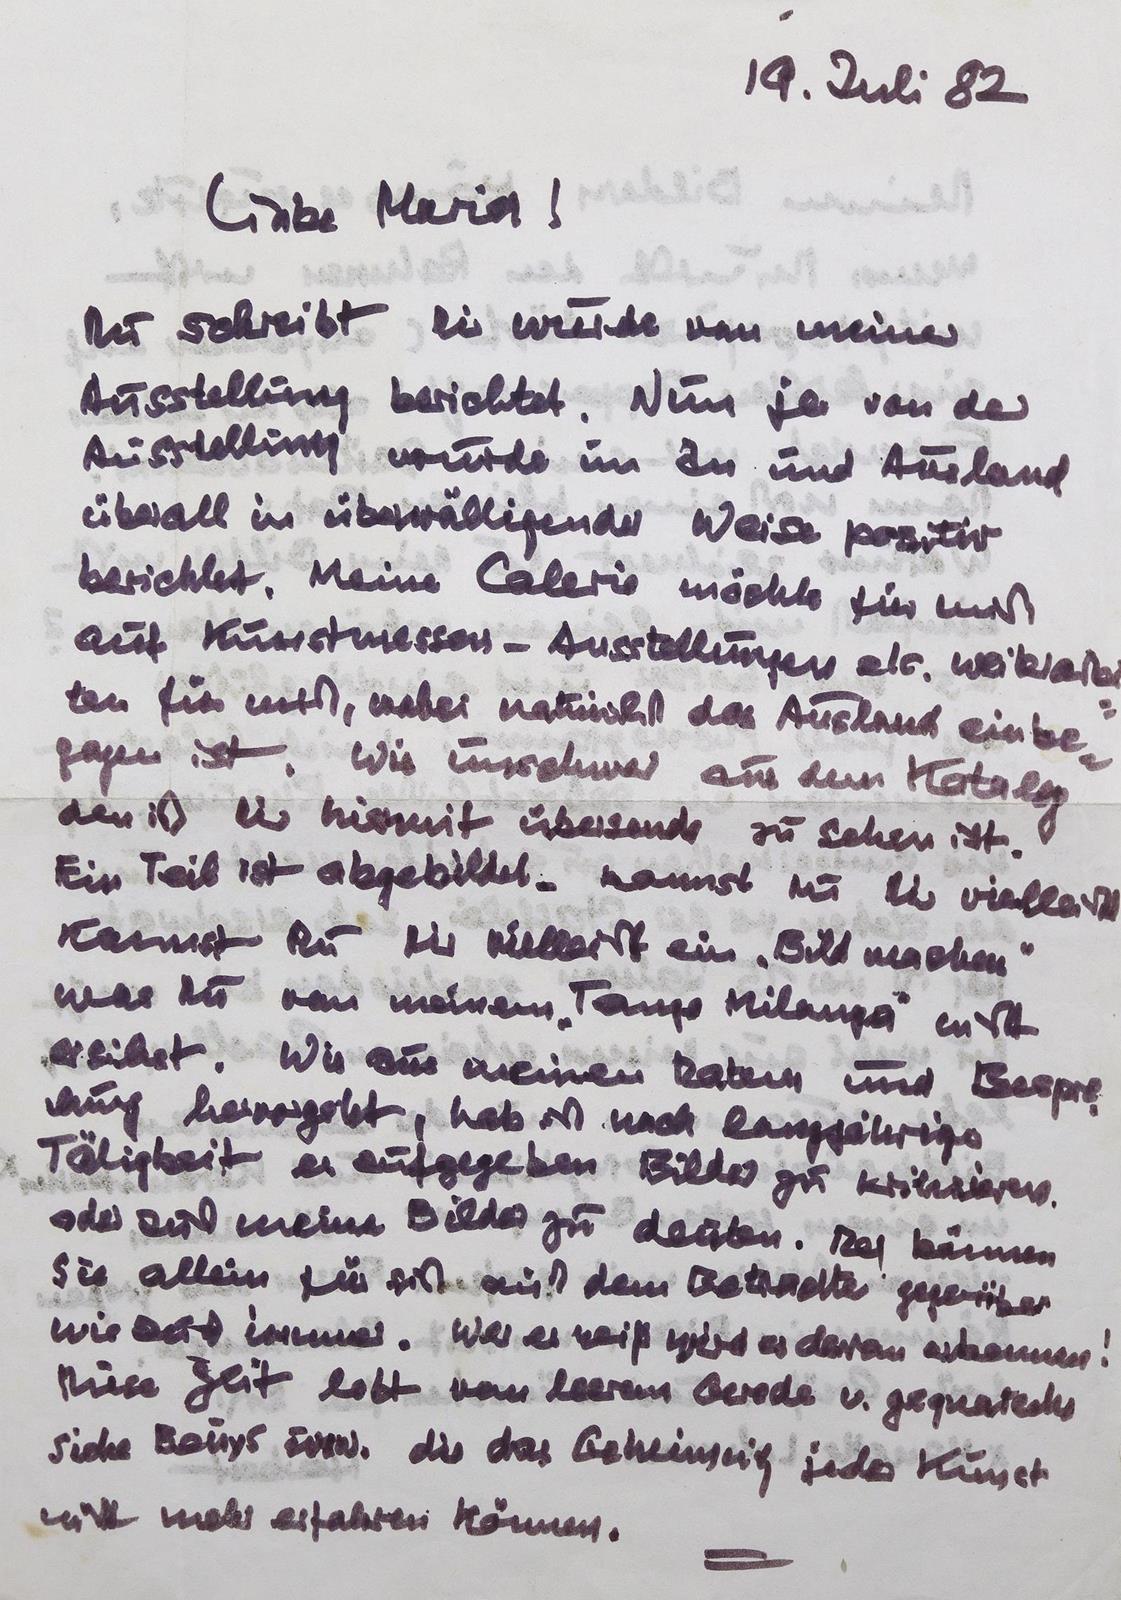 19. Juli 82
Liebe Maria!
Du schreibt Dir würde von meiner
Ausstellung berichtet. Nun ja von der
Ausstellung wurde im In und Ausland
überall in überwältigender Weise positiv
berichtet. Meine Galerie möchte für mich
auf Kunstmessen - Ausstellungen etc. weiterarbei
ten für mich, wobei natürlich das Ausland einbe=
zogen ist. Wie unschwer aus dem Katalog
den ich Dir hiermit übersende zu sehen ist.
Ein Teil ist abgebildet - kannst Du Dir vielleicht
Kannst Du Dir vielleicht ein „Bild machen"
was Du von meinem „Tango Milonga" nicht
ersihst. Wie aus meinen Daten und Bespre
chung hervorgeht, hab ich nach langjährige
Tätigkeit es aufgegeben Bilder zu kritisieren.
oder auch meine Bilder zu deuten. Das können
Sie allein für sich auch dem Betrachter gegenüber
wie immer. Wer es weiß wird es daran erkennen!
Diese Zeit lebt von leerem Gerede u. gequatsche
siehe Beuys usw. die das Geheimnis jeder Kunst
nicht mehr erfahren können.